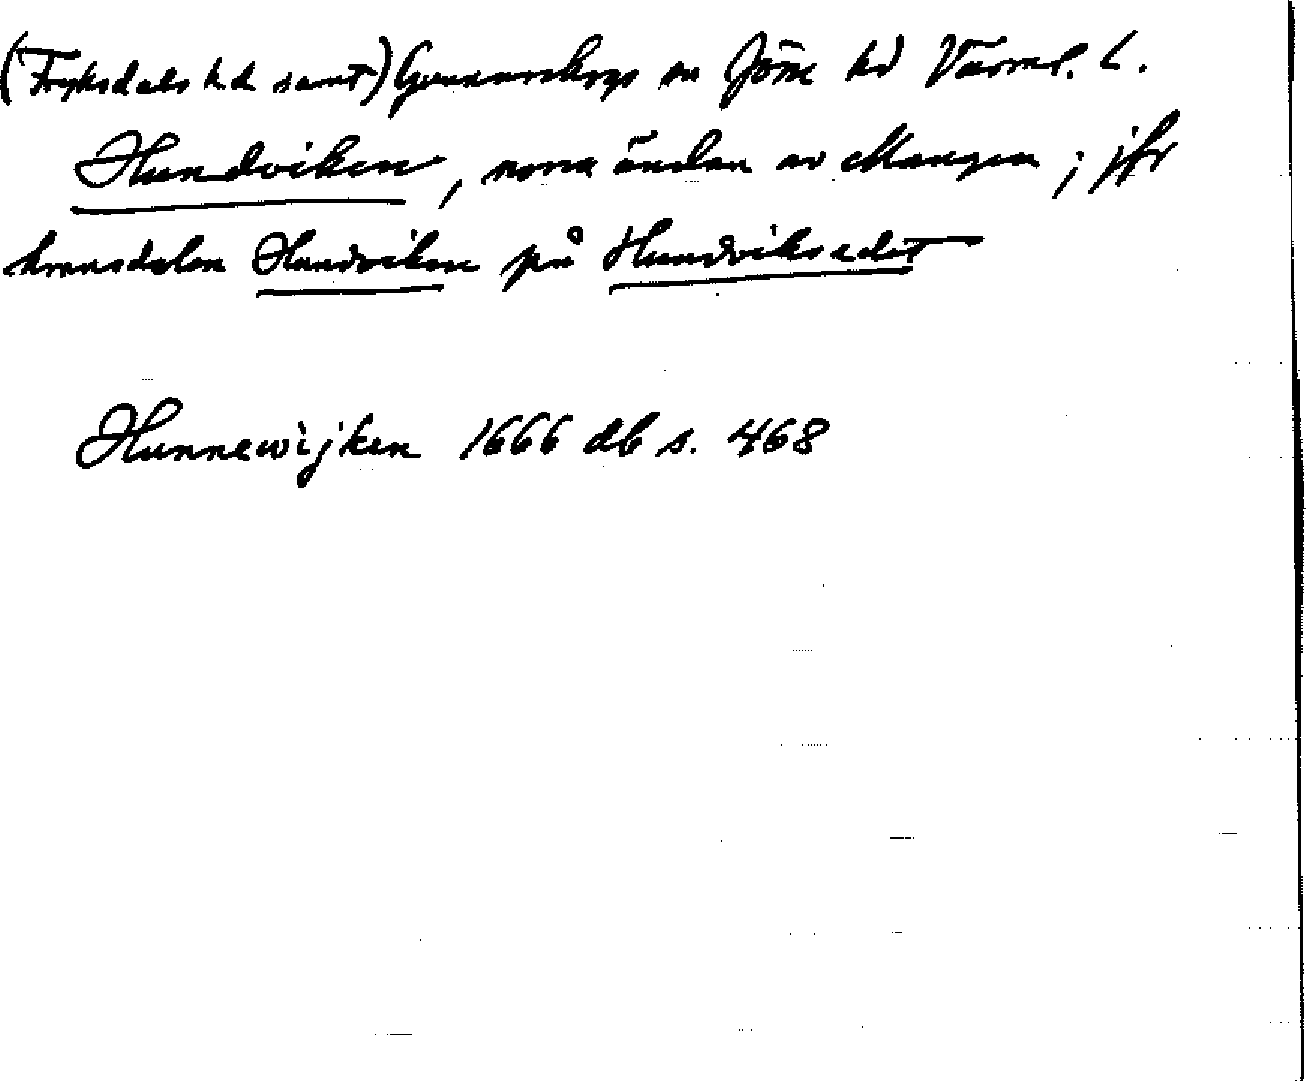 (Fryksdals hd samt) Gunnarskogs sn Jösse hd Värml. L.
Hundviken, norra ändan av Mangen; jfr
kronodelen Hundviken på Hundviksedet
Hunnewijken 1666 db s. 468